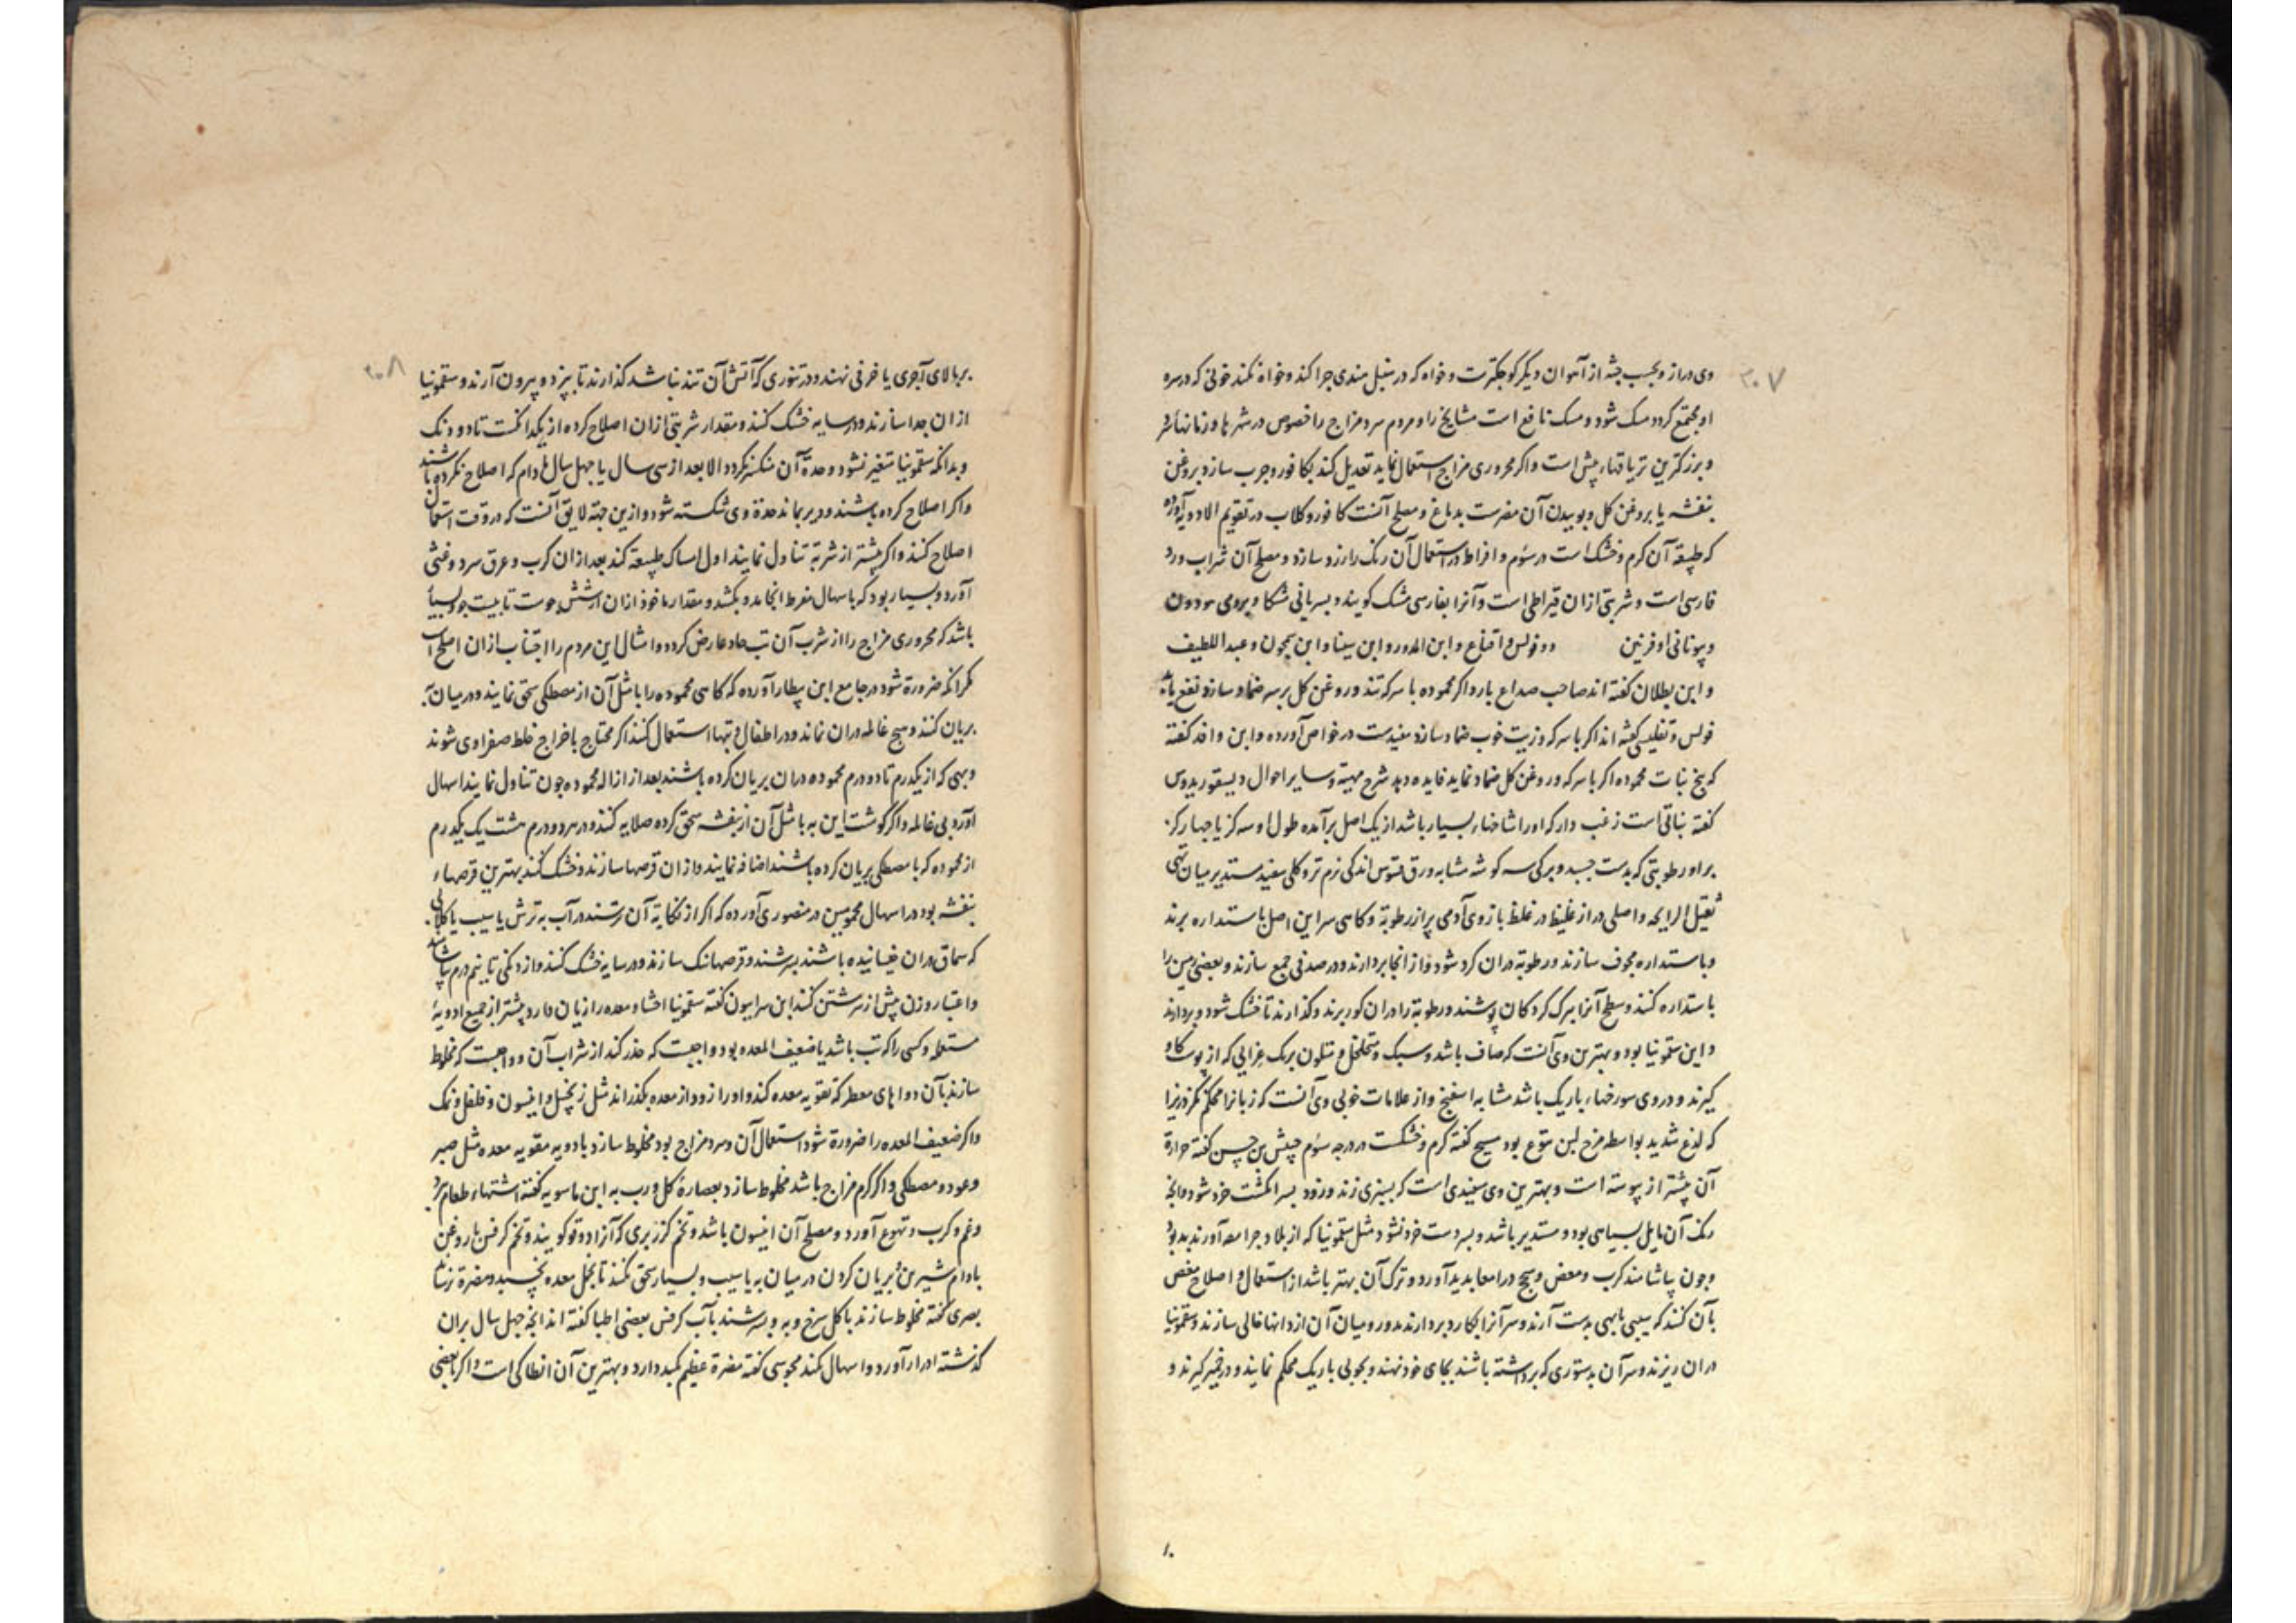 ۳۰۷
وی دراز و بحسب جثه از آهوان دیگر کوچکترست و خواه که در سنبل هندی چرا کند و خواه نکند خونی که در سره
او مجتمع کردد مسک شود و مسک نافع است مشایخ را و مردم سرد مزاج را خصوص در شهرها و زمانهاء سرد
و بزرکترین تریاقهاء بیش است و اکر محروری مزاج استعمال نماید تعدیل کند بکافور و چرب سازد بروغن
بنفشه یا بروغن کل و بوییدن آن مضرست بدماغ و مصلح آنست کافور و کلاب در تقویم الادویه آورده
که طبیعة آن کرم و خشک است در سوم و افراط در استعمال آن رنک را زرد سازد و مصلح آن شراب ورد
فارسی است و شربتی ازان قیراطی است و آنرا بفارسی مشک کویند و بسریانی مشکا و برومی مودون
و یونانی اوفرنین دوفولس و اقناع و ابن المدور و ابن سینا و ابن سمجون و عبد اللطیف
و ابن بطلان کفته اند صاحب صداع بارد اکر محموده با سرکه تند و روغن کل بر سر ضماد سازد نفع یابد
فولس و تفلیسی کفته اند اکر با سرکه و زیت خوب ضماد سازد مفیدست در خواص آورده و ابن وافد کفته
که بیخ نبات محموده اکر با سرکه و روغن کل ضماد نماید فایده دهد شرح مهیة و سایر احوال دیسقوریدوس
کفته نباتی است زغب دار که او را شاخهاء بسیار باشد از یک اصل برآمده طول او سه کز یا چهار کز
بر او رطوبتی که بدست چسبد و برکی سه کوشه مشابه ورق قسوس اندکی نرم تر و کلی سفید مستدیر میان تهی
ثقیل الرایحه و اصلی دراز غلیظ در غلظ بازوی آدمی پر از رطوبة و کاسی سر این اصل باستداره برند
و باستداره مجوف سازند و رطوبة دران کرد شود و از انجا بردارند و در صدفی جمع سازند و بعضی زمین را
باستداره کنند و سطح آنرا ببرک کردکان پوشند و رطوبة را دران کو ریزند و کذارند تا خشک شود و بردارند
و این سقمونیا بود و بهترین وی آنست که صاف باشد و سبک و متخلخل و متلون برنک غرایی که از پوست کاو
کیرند و در وی سوراخهاء باریک باشد مشابه اسفنج و از علامات خوبی وی آنست که زبانرا محکم نکزد زیرا
که لذع شدید بواسطه مزج لبن یتوع بود مسیح کفته کرم و خشکست در درجه سوم حبیش بن حسن کفته حرارة
آن بیشتر از یبوسة است و بهترین وی سفیدی است که بسبزی زند و زود بسر انکشت خرد شود و آنچه
رنک آن مایل بسیاهی بود و مستدیر باشد و بسر دست خرد نشود مثل سقمونیا که از بلاد جرامعه آورند بد بود
و چون بیاشامند کرب و مغص و سحج در امعا پدید آورد و ترک آن بهتر باشد از استعمال و اصلاح مغص
بآن کنند که سیبی یا بهی بدست آرند و سر آنرا بکارد بردارند و درو میان آن از دانها خالی سازند و سقمونیا
دران ریزند و سر آن بدستوری که برداشته باشند بجای خود نهند و بچوبی باریک محکم نمایند و در خمیر کیرند و
۳۰۸
بر بالای آجری یا خزفی نهند و در تنوری که آتش آن تند نباشد کذارند تا بپزد و بیرون آرند و سقمونیا
ازان جدا سازند و در سایه خشک کنند و مقدار شربتی ازان اصلاح کرده از یکدانکست تا دو دنک
و بدانکه سقمونیا متغیر نشود و حدة آن منکسر نکردد الا بعد از سی سال یا چهل سال مادام که اصلاح نکرده باشند
و اکر اصلاح کرده باشند و دیر بماند حدة وی شکسته شود و ازین جهة لایق آنست که در وقت استعمال
اصلاح کنند و اکر بیشتر از شربة تناول نمایند اول امساک طبیعة کند بعد ازان کرب و عرق سرد و غشی
آورد و بسیار بود که باسهال مفرط انجامد و بکشد و مقدار ماخوذ ازان از شش جوست تا بیست جو و بسیا
باشد که محروری مزاج را از شرب آن تب حاد عارض کردد و امثال این مردم را اجتناب ازان اصلح است
مکر آنکه ضرورة شود در جامع ابن بیطار آورده که کاسی محموده را با مثل آن از مصطکی سحق نمایند و در میان به
بریان کنند و هیچ غائله دران نماند و در اطفال و تبها استعمال کنند اکر محتاج باخراج خلط صفراوی شوند
و بهی که از یکدرم تا دو درم محموده دران بریان کرده باشند بعد از ازاله محموده چون تناول نمایند اسهال
آورد بی غائله و اکر کوشت این به با مثل آن از بنفشه سحق کرده صلایه کنند و در هر دو درم هشت یک یکدرم
از محموده که با مصطکی بریان کرده باشند اضافه نمایند و ازان قرصها سازند و خشک کنند بهترین قرصهاء
بنفشه بود در اسهال محمومین در منصوری آورده که اکر از نکایة آن ترسند در آب به ترش یا سیب یا کلابی
که سماق دران خیسانیده باشند بسرشند و قرصهاتنک سازند و در سایه خشک کنند و از دنکی تا نیم درم بیاشامند
و اعتبار وزن پیش از سرشتن کنند ابن سرابیون کفته سقمونیا احشا و معده را زیان دارد بیشتر از جمیع ادویهٔ
مسهله و کسی را که تب باشد یا ضعیف المعده بود واجبست که حذر کند از شراب آن و واجبست که مخلوط
سازند بآن دواهای معطر که تقویه معده کند و او را زود از معده بکذراند مثل زنجبیل و انیسون و فلفل و نمک
و اکر ضعیف المعده را ضرورة شود استعمال آن و سرد مزاج بود مخلوط سازد بادویه مقویه معده مثل صبر
و عود و مصطکی و اکر کرم مزاج باشد مخلوط سازد بعصارهٔ کل و رب به ابن ماسویه کفته اشتهاء طعام برد
و غم و کرب و تهوع آورد و مصلح آن انیسون باشد و تخم کزر بری که آنرا دوقو کویند و تخم کرفس با روغن
بادام شیرین و بریان کردن در میان به یا سیب و بسیار سحق نکنند تا بخمل معده نچسبد و مضرة نرساند
بصری کفته مخلوط سازند با کل سرخ و به و بسرشند بآب کرفس بعضی اطبا کفته اند آنچه چهل سال بران
کذشته ادرار آورد و اسهال نکند مجوسی کفته مضرة عظیم بکبد دارد و بهترین آن انطاکی است و اکر با بعضی